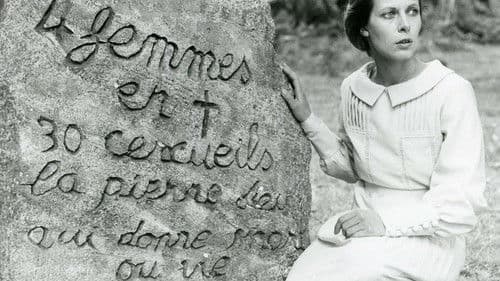 4 femmes
en †
30 cercueils
la pierre
qui donne mor
ou vie